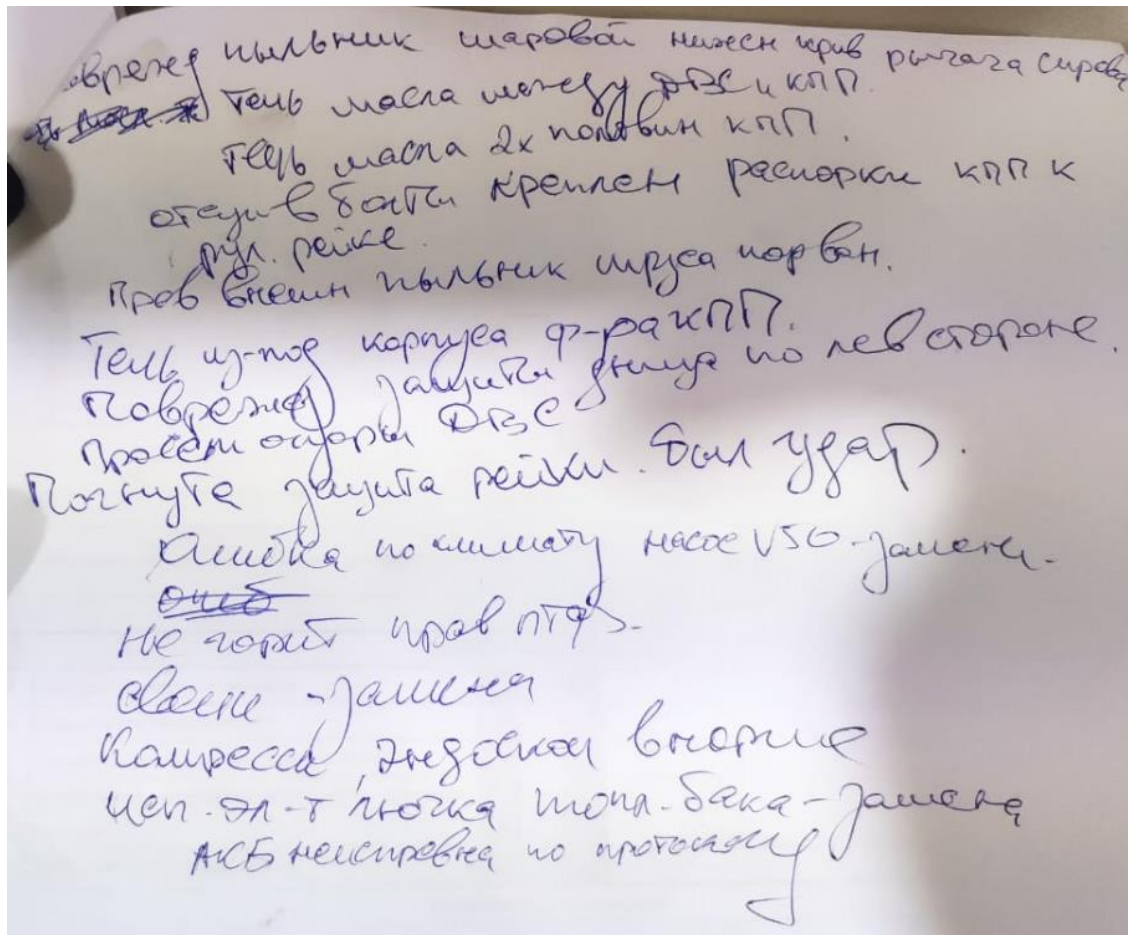 поврежд пыльник шаровой нижн крив рычага справа
Течь масла между ДВС и КПП.
Течь масла 2х половин КПП.
отсутв болты креплен распорки КПП к
рул. рейке.
Прав внешн пыльник шруса порван.
Течь из-под корпуса ф-ра КПП.
Поврежд защиты днища по лев стороне.
Просели опоры ДВС
Погнута защита рейки. Был удар.
Ошибка по климату насос V50 - замена.
ошб
Не горит прав птф.
свечи - замена
Компресси, эндоскоп в норме
неи. эл-т лючка топл. бака - замена
АКБ неисправна по протоколу